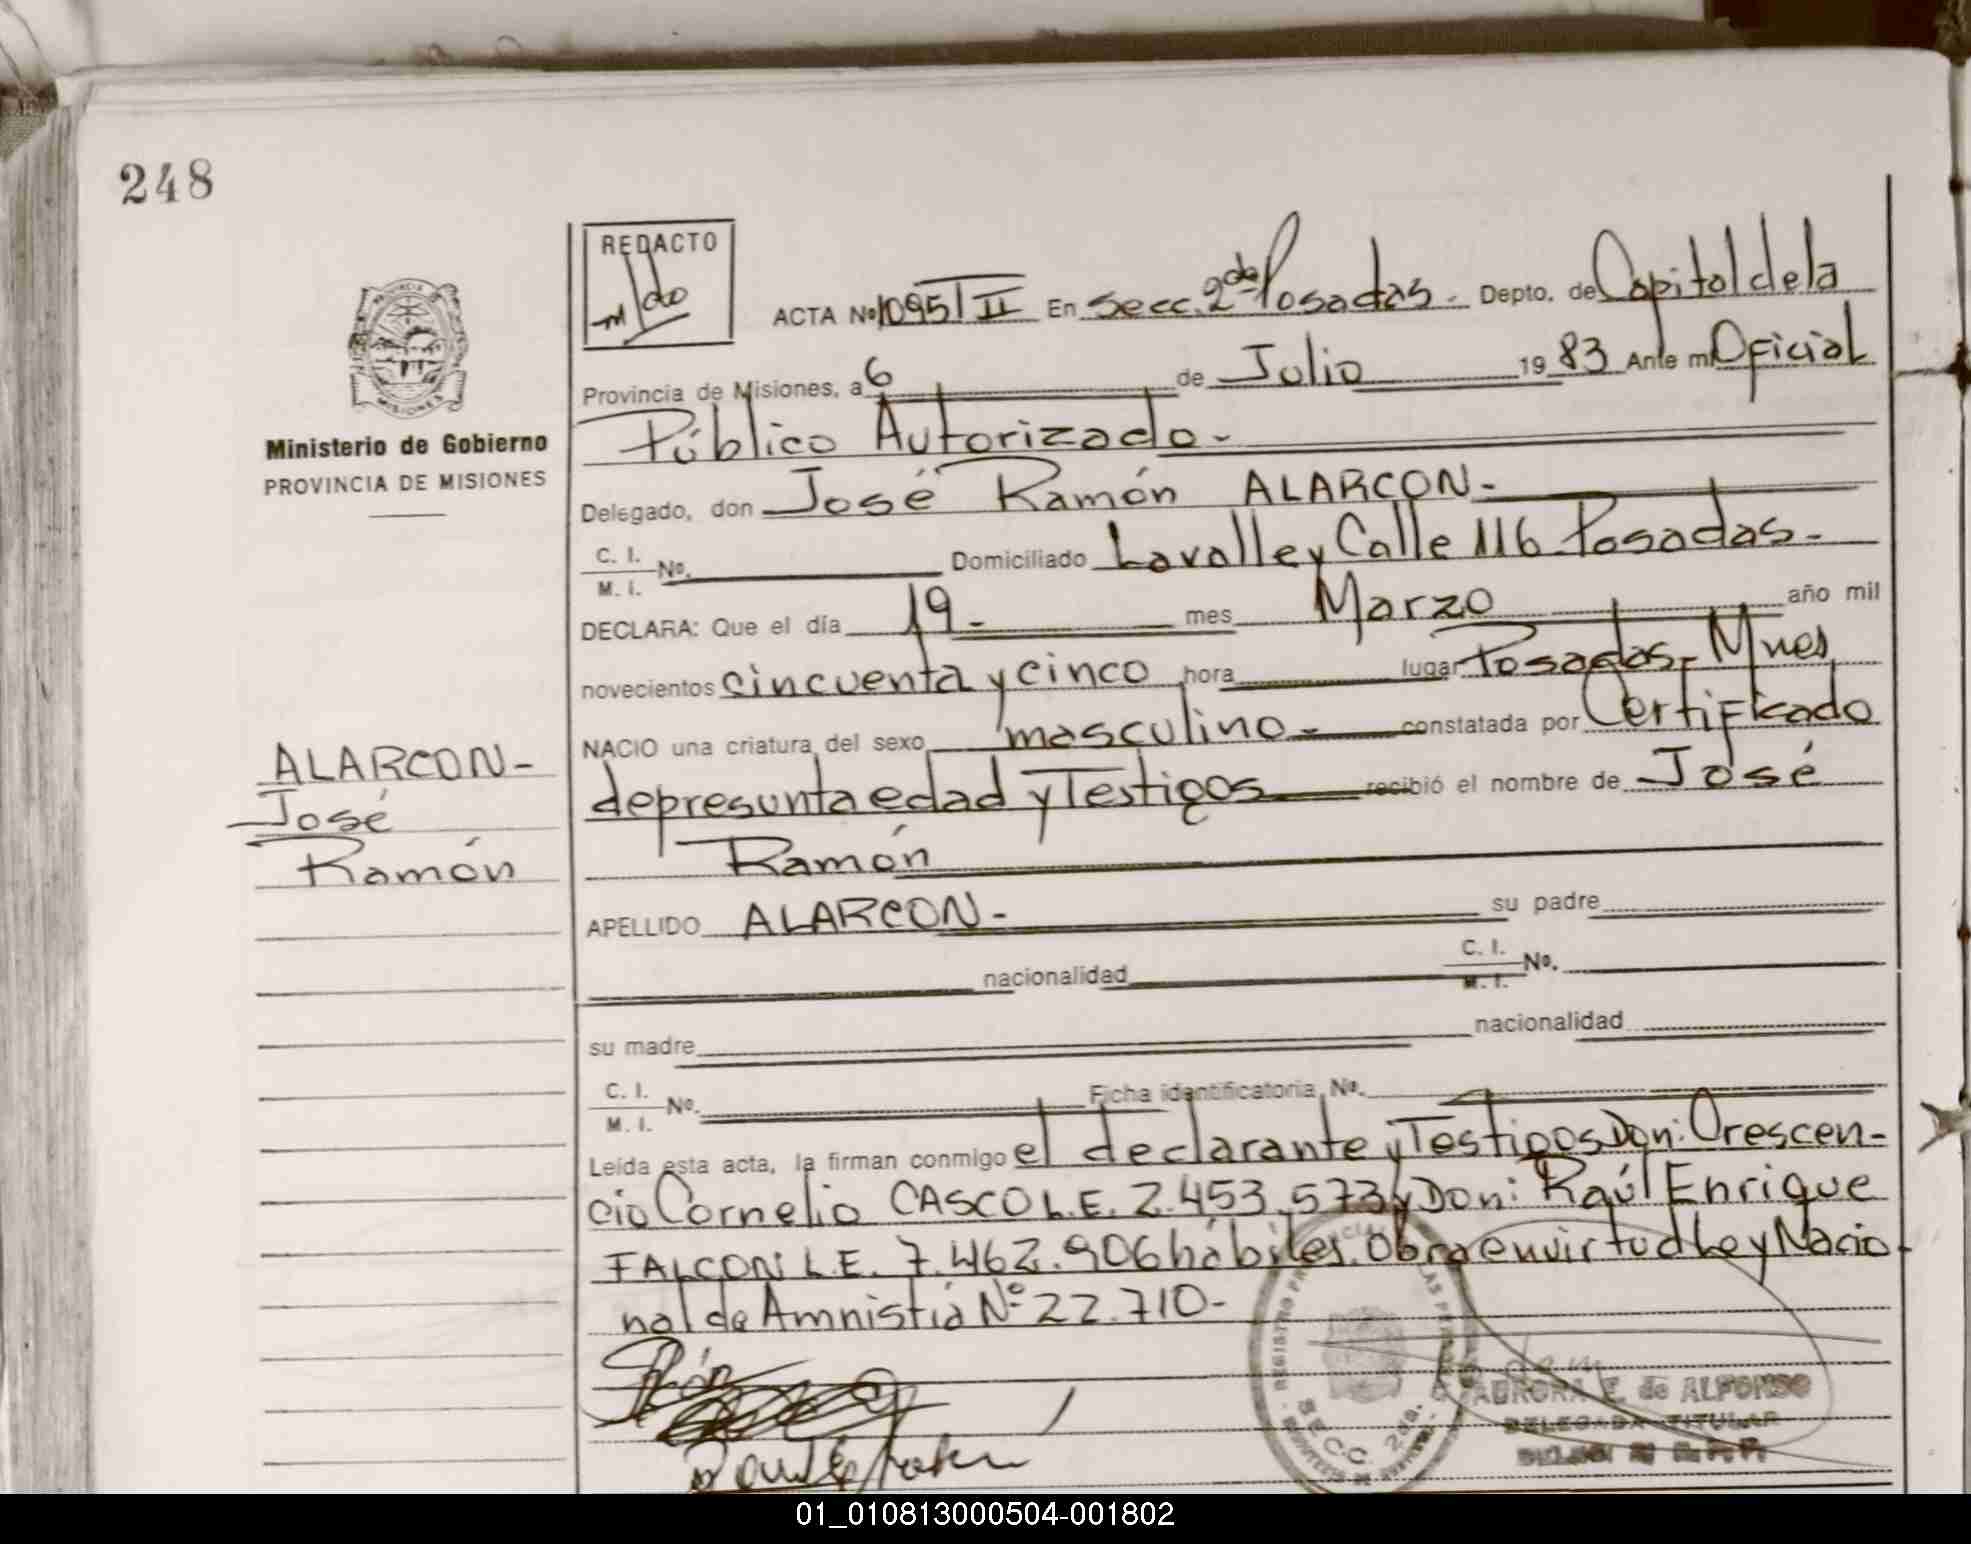 248
REDACTO
PROVINCIA DE MISIONES
ACTA Nº 1095 T II En Secc. 2da Posadas.- Depto. de Capital de la
Provincia de Misiones, a 6 de Julio 19 83 Ante mi Oficial
Público Autorizado.-
Ministerio de Gobierno
PROVINCIA DE MISIONES
Delegado, don José Ramón ALARCON.-
C. I.
M. I. Nº. Domiciliado Lavalle y Calle 116 Posadas.-
DECLARA: Que el día 19.- mes Marzo año mil
novecientos cincuenta y cinco hora lugar Posadas, Mnes
NACIO una criatura del sexo masculino.- constatada por Certificado
de presunta edad y Testigos recibió el nombre de José
Ramón
ALARCON-
José
Ramón
APELLIDO ALARCON.- su padre
nacionalidad C. I.
M. I. Nº.
su madre nacionalidad
C. I.
M. I. Nº. Ficha identificatoria Nº.
Leída esta acta, la firman conmigo el declarante y Testigos Don: Crescen-
cio Cornelio CASCO L.E. 2.453.573 y Don: Raúl Enrique
FALCON L.E. 7.462.906 hábiles. Obra en virtud Ley Nacio-
nal de Amnistía Nº 22.710-
SECC. 2da.
AURORA E. de ALFONSO
DELEGADA TITULAR
01_010813000504-001802